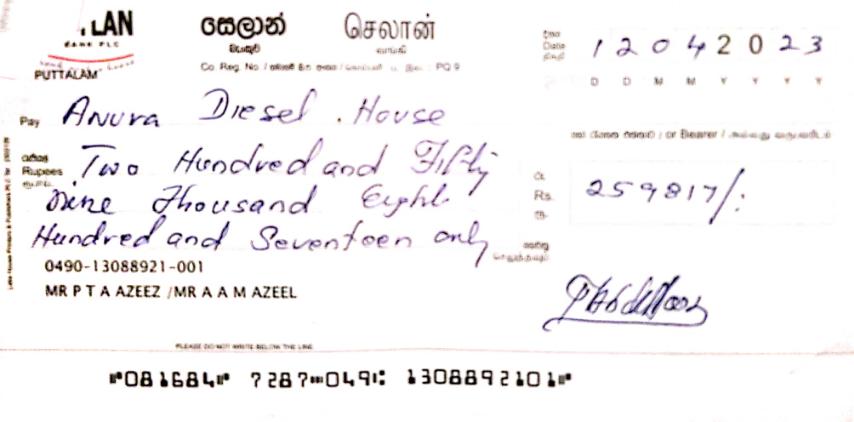 LAN
BANK PLC
සෙලාන්
බැංකුව
செலான்
வங்கி
PUTTALAM
Co. Reg. No. / PQ 9
Date
12042023
D D M M Y Y Y Y
Pay Anura Diesel House
/ or Bearer /
Rupees Two Hundred and Fifty
Nine Thousand Eight
Hundred and Seventeen only
Rs. 259817/:
0490-13088921-001
MR P T A AZEEZ /MR A A M AZEEL
PLEASE DO NOT WRITE BELOW THE LINE
⑈081684⑈ 7287⑉049⑆ 1308892101⑈